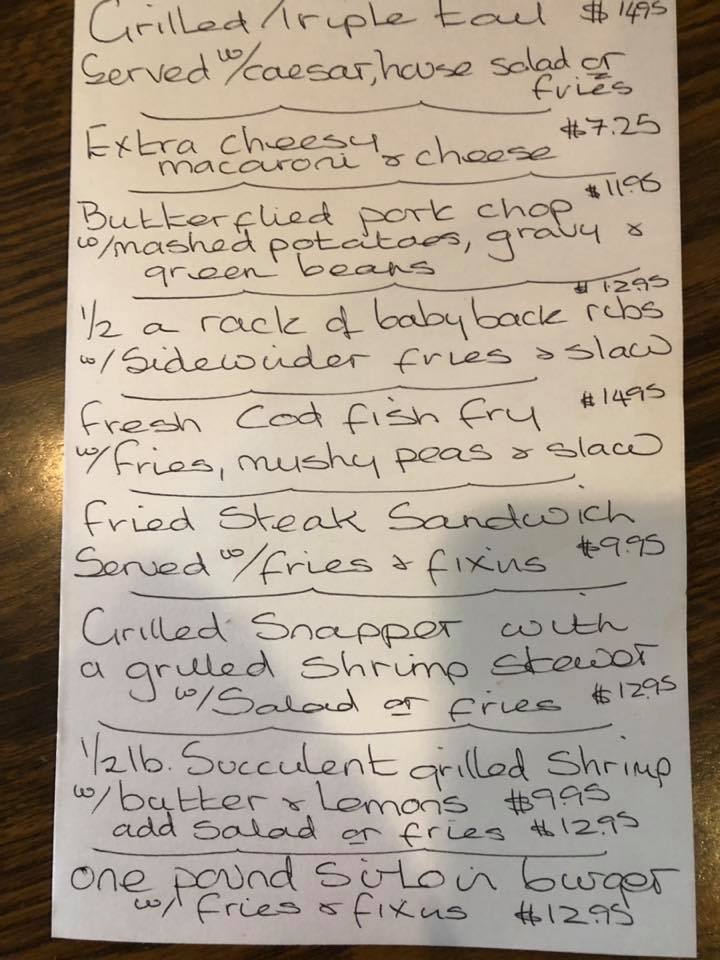 Grilled Triple tail $14.95
Served w/caesar, house salad or
fries
Extra cheesy $7.25
macaroni & cheese
Butterflied pork chop $11.95
w/mashed potatoes, gravy &
green beans
$12.95
1/2 a rack of babyback ribs
w/Sidewinder fries & slaw
Fresh Cod fish fry $14.95
w/fries, mushy peas & slaw
Fried Steak Sandwich
Served w/fries & fixins $9.95
Grilled Snapper with
a grilled Shrimp skewer
w/Salad or fries $12.95
1/2 lb. Succulent grilled Shrimp
w/butter & Lemons $9.95
add Salad or fries $12.95
One pound Sirloin burger
w/ fries & fixins $12.95